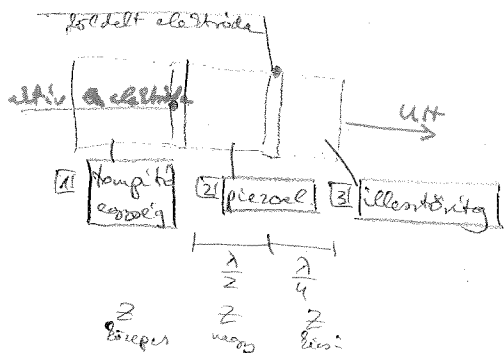 földelt elektróda
aktív elektróda
UH
1 tompító egység
2 piezoel.
3 illesztőrétg
λ/2 λ/4
Z közepes Z nagy Z kicsi